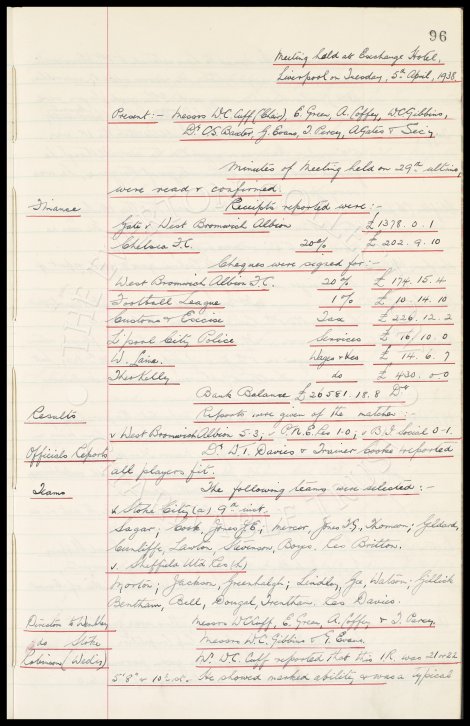 96
Meeting held at Exchange Hotel,
Liverpool on Tuesday, 5th April, 1938
Present:- Messrs W.C. Cuff (Chair), E. Green, A. Coffey, W.C. Gibbins,
Dr C.S. Baxter, G. Evans, T. Percy, A. Gates & Secy
Minutes of Meeting held on 29th ultimo,
were read & confirmed.
Finance Receipts reported were:-
Gate v West Bromwich Albion £1378. 0. 1
Chelsea F.C. 20% £ 202. 9. 10
Cheques were signed for:-
West Bromwich Albion F.C. 20% £ 174. 15. 4
Football League 1% £ 10. 14. 10
Customs & Excise Tax £ 226. 12. 2
L'pool City Police Services £ 16/10. 0
W. Lane. Wages & Exes £ 14. 6. 7
Theo Kelly do £ 430. 0 0
Bank Balance £20581. 18. 8 Dr
Results Reports were given of the matches:-
v West Bromwich Albion 5-3; v P.N.E. Res 1-0; v B.I. Social 3-1.
Officials Reports Dr D.I. Davies & Trainer Cooke reported
all players fit.
Teams The following teams were selected:-
v Stoke City (a) 9th inst.
Sagar; Cook, Jones J.E; Mercer, Jones T.G, Thomson; Geldard,
Cunliffe, Lawton, Stevenson, Boyes. Res Britton.
v. Sheffield Utd Res (h)
Morton; Jackson, Greenhalgh; Lindley, Gee, Watson; Gillick
Bentham, Bell, Dougal, Trentham. Res Davies.
Director to Wembley Messrs W.C. Cuff, E. Green, A. Coffey & T. Percy.
do Stoke Messrs W.C. Gibbins & G. Evans.
Robinson (Wedn) Mr W.C. Cuff reported that this I.R. was
5'8" & 10½ st. He showed marked ability & was a typical